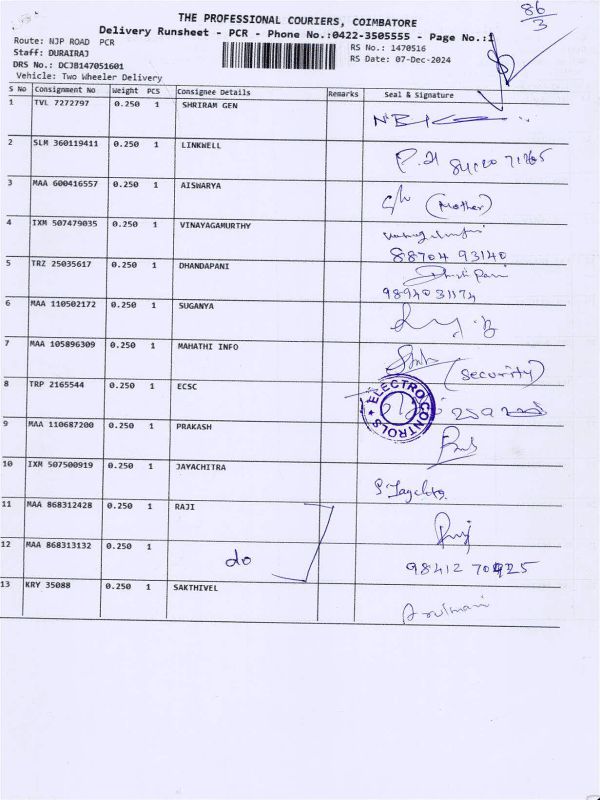 86
3
THE PROFESSIONAL COURIERS, COIMBATORE
Delivery Runsheet - PCR - Phone No.:0422-3505555 - Page No.:1
Route: NJP ROAD PCR
RS No.: 1470516
Staff: DURAIRAJ
RS Date: 07-Dec-2024
DRS No.: DCJB147051601
Vehicle: Two Wheeler Delivery
S No Consignment No Weight PCS Consignee Details Remarks Seal & Signature
1 TVL 7272797 0.250 1 SHRIRAM GEN
2 SLM 360119411 0.250 1 LINKWELL
3 MAA 600416557 0.250 1 AISWARYA (Mother)
4 IXM 507479035 0.250 1 VINAYAGAMURTHY
88704 93140
5 TRZ 25035617 0.250 1 DHANDAPANI
9894031174
6 MAA 110502172 0.250 1 SUGANYA
7 MAA 105896309 0.250 1 MAHATHI INFO
(security)
8 TRP 2165544 0.250 1 ECSC
ELECTRO CONTROLS
9 MAA 110687200 0.250 1 PRAKASH
10 IXM 507500919 0.250 1 JAYACHITRA
11 MAA 868312428 0.250 1 RAJI
12 MAA 868313132 0.250 1 do
13 KRY 35088 0.250 1 SAKTHIVEL